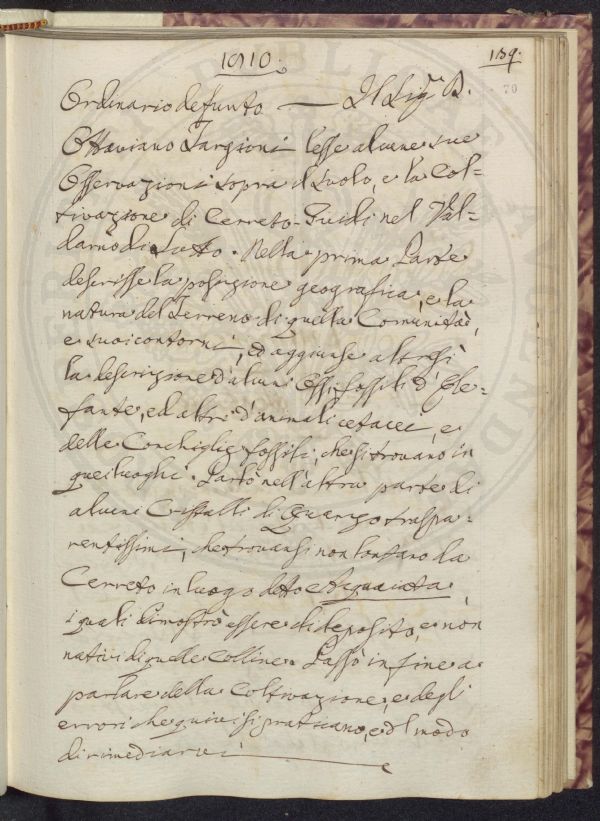 1810.
139.
70
Ordinario defunto — Il Sig.r D.
Ottaviano Targioni lesse alcune sue
Osservazioni sopra il suolo, e la Col=
tivazione di Cerreto-Guidi nel Val=
darno di Sotto. Nella prima Parte
descrisse la posizione geografica, e la
natura del Terreno di quella Comunità,
e suoi contorni, ed aggiunse altresì
la descrizione d'alcuni Ossi fossili d'Ele=
fante, ed altri d'animali cetacei, e
delle Conchiglie fossili, che si trovano in
quei luoghi. Parlò nell'altra parte di
alcuni Cristalli di Quarzo traspa=
rentissimi, che trovansi non lontano da
Cerreto in luogo detto Acquaiata,
i quali dimostrò essere di deposito, e non
nativi di quelle Colline. Passò in fine a
parlare della Coltivazione, e degli
errori che quivi si praticano, e del modo
di rimediarvi